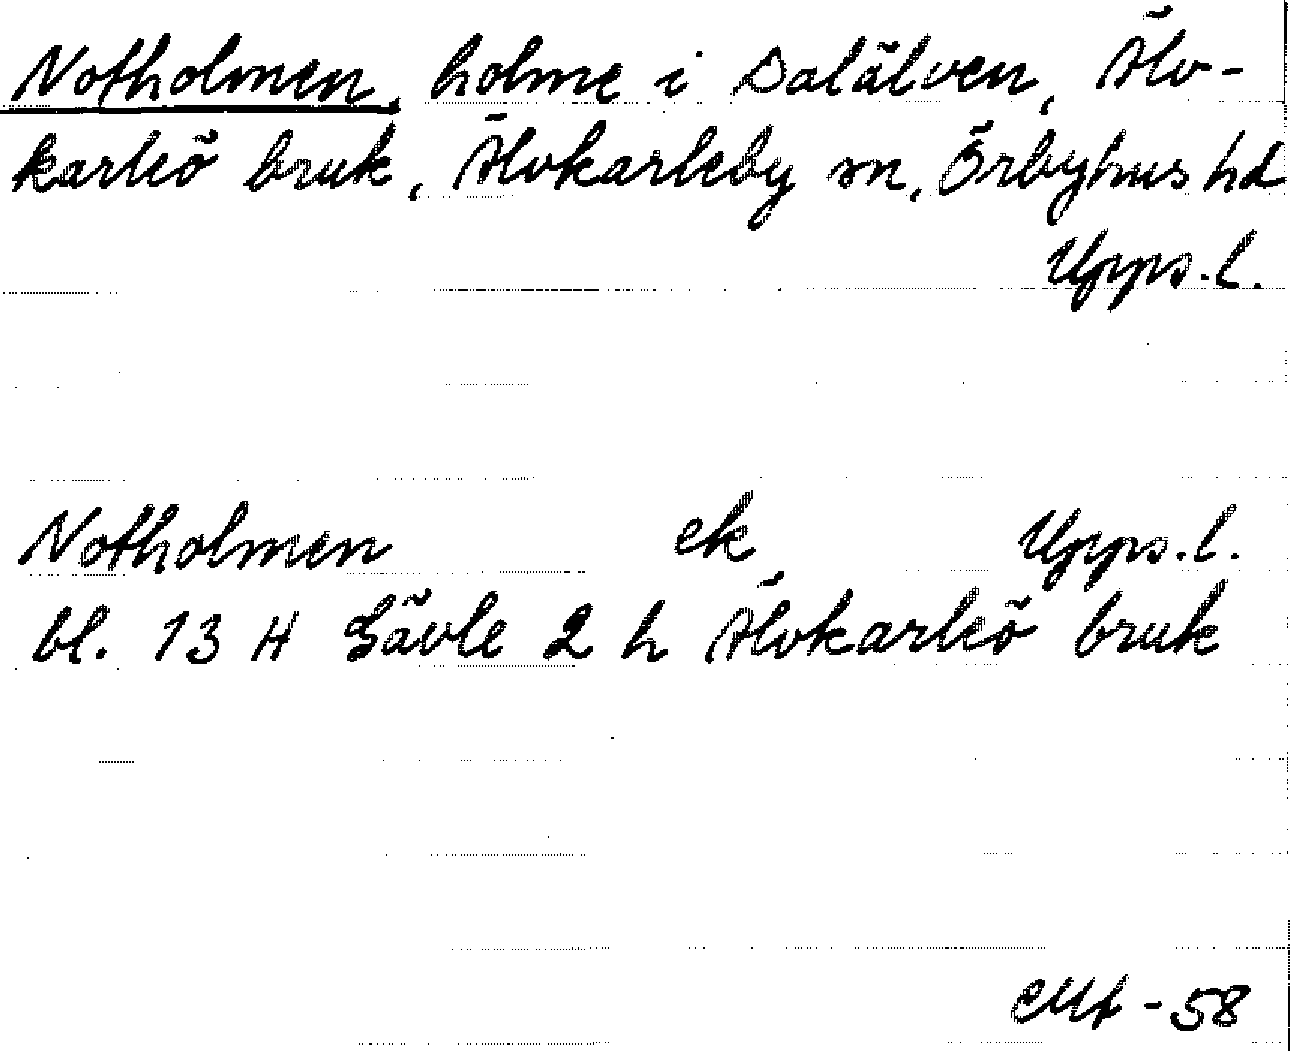 Notholmen, holme i Dalälven, Älv-
karleö bruk, Älvkarleby sn, Örbyhus hd
Upps.l.
Notholmen ek Upps.l.
bl. 13 H Gävle 2 h Älvkarleö bruk
-58